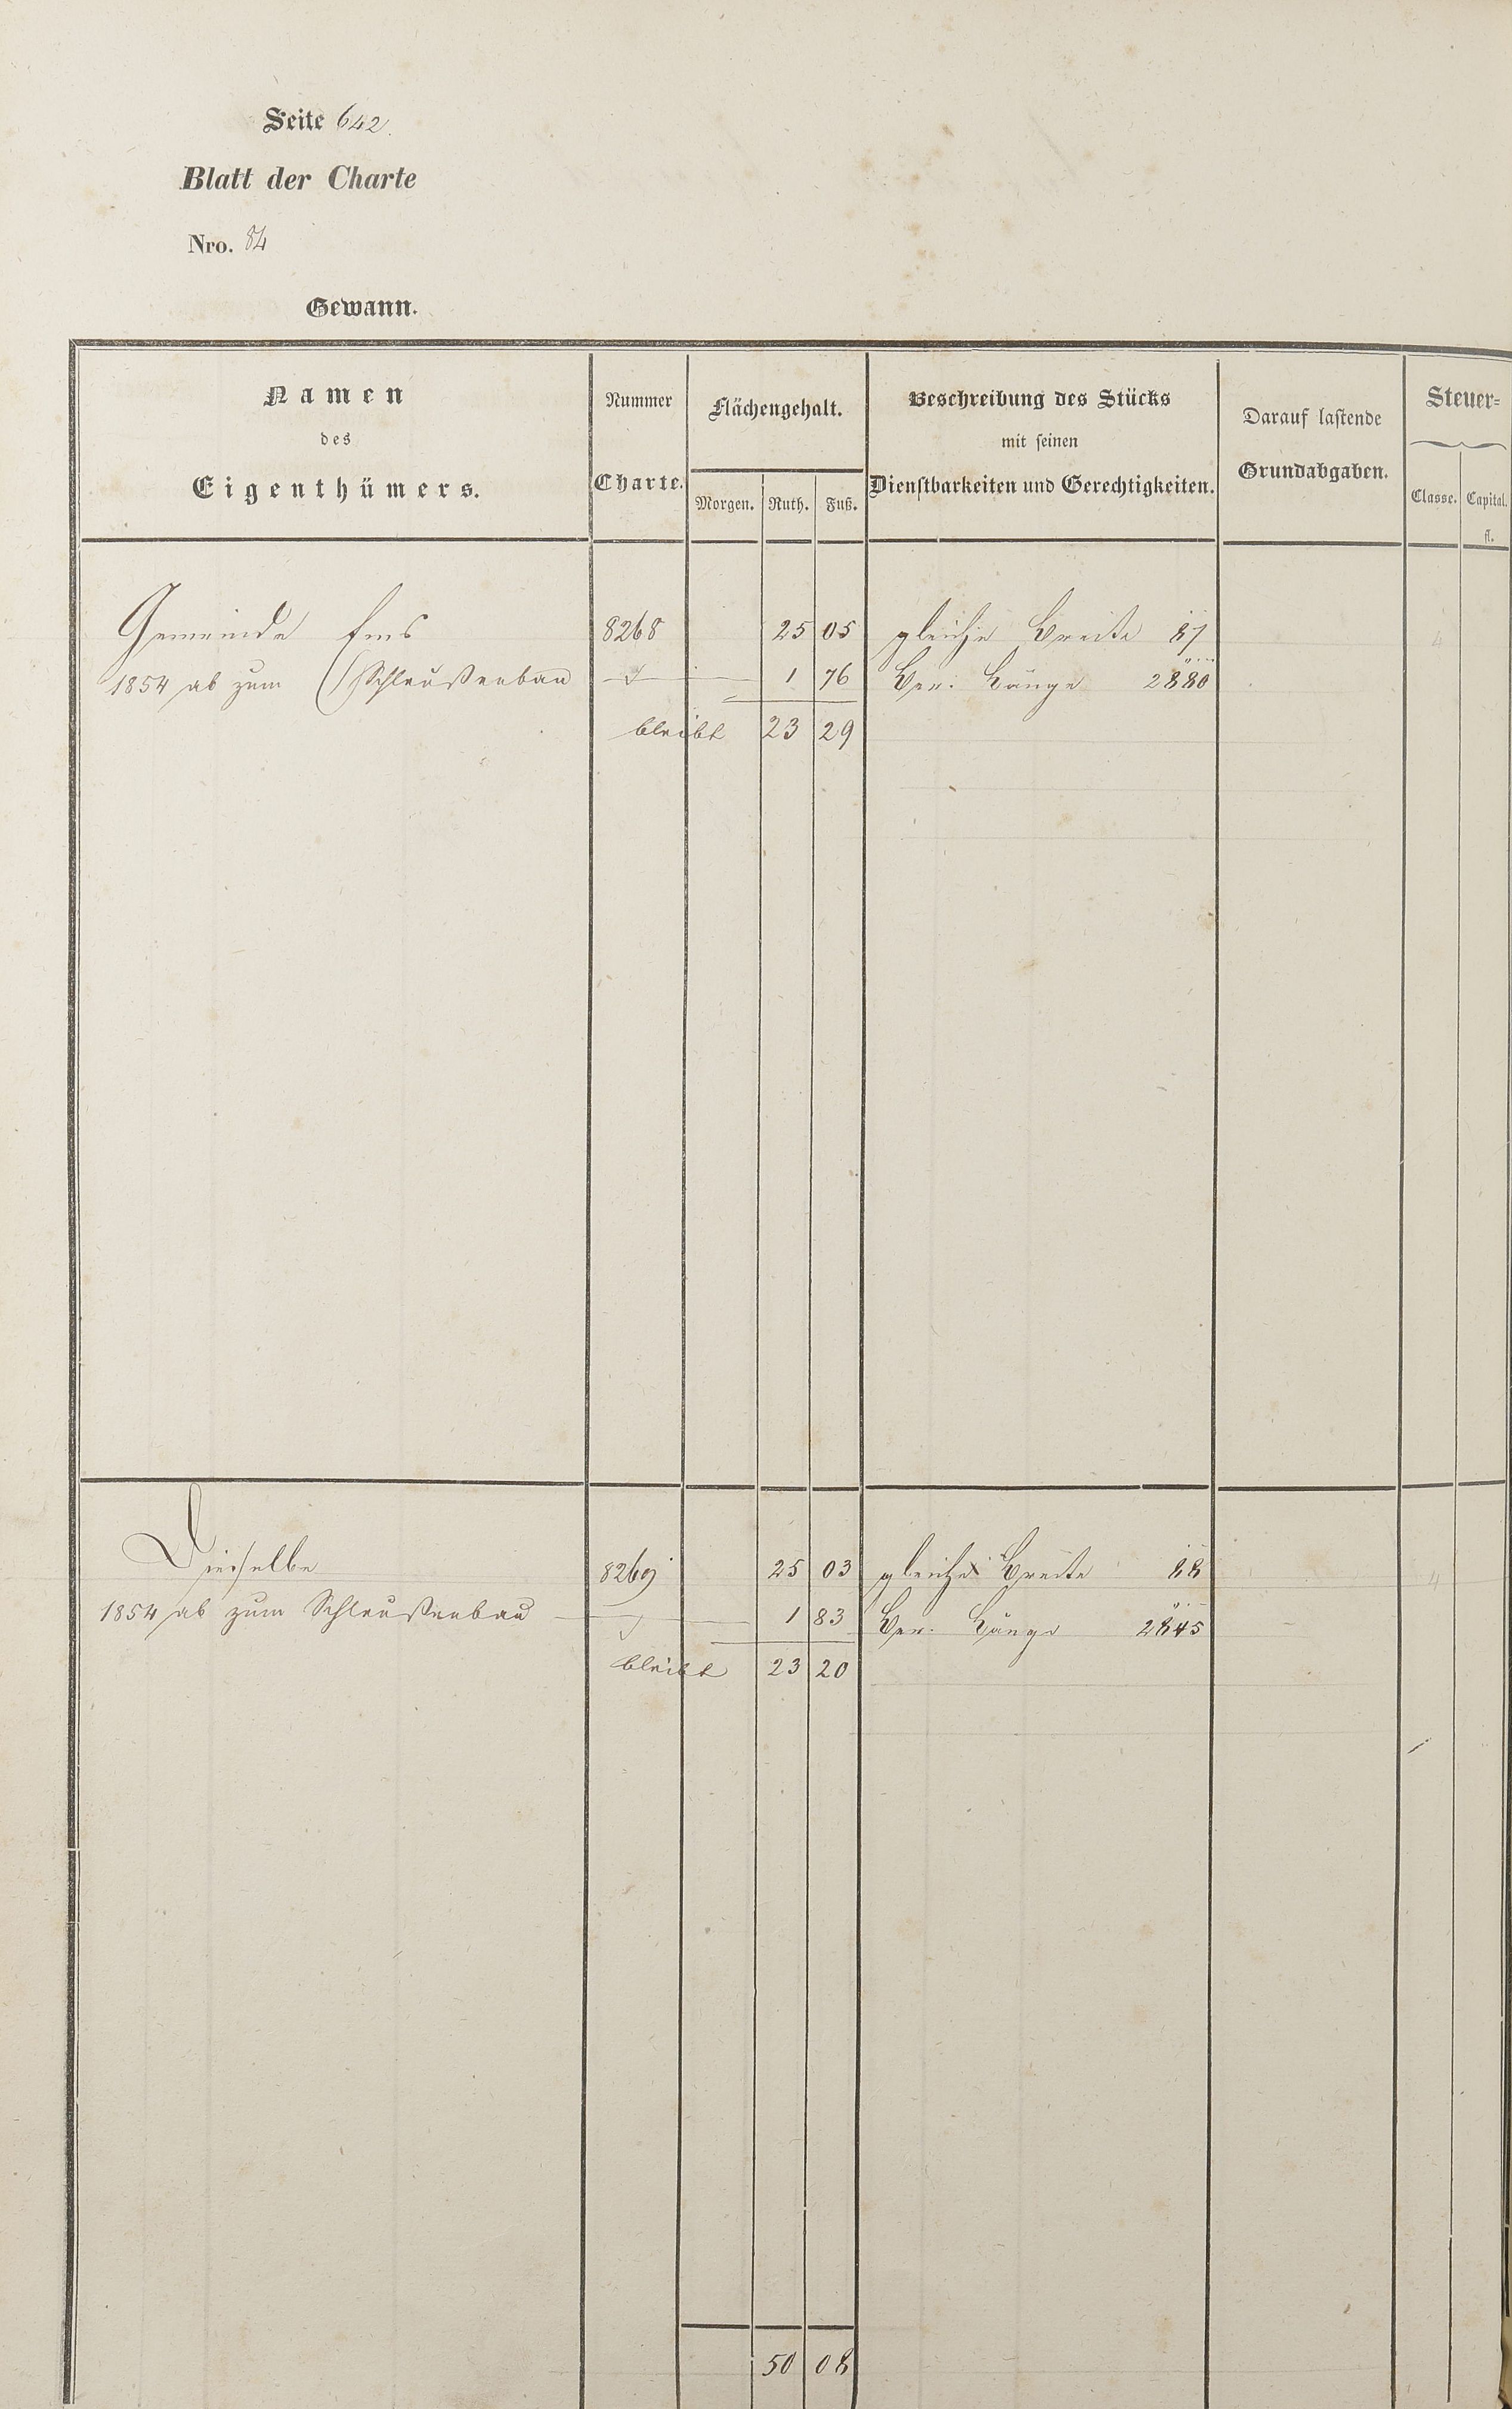 Seite 642.
Blatt der Charte
Nro. 84
Gewann.
Namen
des
Eigenthümers.
Nummer
Charte.
Flächengehalt.
Morgen. Ruth. Fuß.
Beschreibung des Stücks
mit seinen
Dienstbarkeiten und Gerechtigkeiten.
Darauf lastende
Grundabgaben.
Steuer=
Classe. Capital.
fl.
Gemeinde Ems 8268 25 05 gleiche Breite 87 4
1854 ab zum Schleußenbau 1 76 Ber. Länge 2880
bleibt 23 29
Dieselbe 8269 25 03 gleiche Breite 88 4
1854 ab zum Schleußenbau 1 83 Ber. Länge 2845
bleibt 23 20
50 08